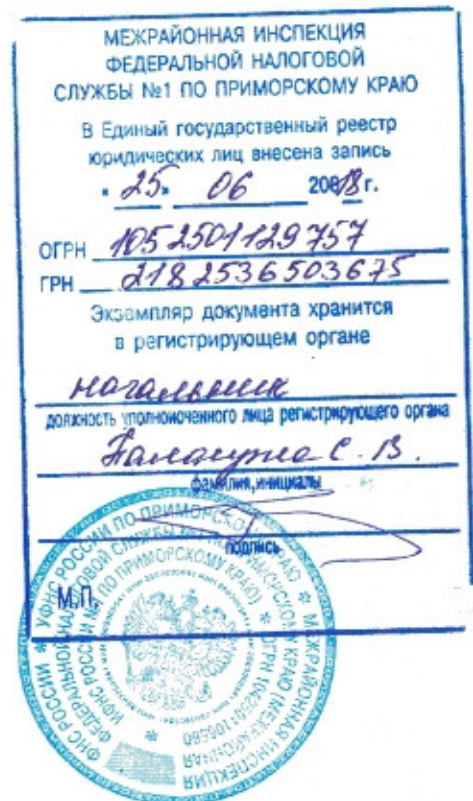 МЕЖРАЙОННАЯ ИНСПЕКЦИЯ
ФЕДЕРАЛЬНОЙ НАЛОГОВОЙ
СЛУЖБЫ №1 ПО ПРИМОРСКОМУ КРАЮ
В Единый государственный реестр
юридических лиц внесена запись
« 25 » 06 2018 г.
ОГРН 1052501129757
ГРН 2182536503675
Экземпляр документа хранится
в регистрирующем органе
начальник
должность уполномоченного лица регистрирующего органа
С. В.
фамилия, инициалы
подпись
М.П.
УФНС РОССИИ ПО ПРИМОРСКОМУ КРАЮ
МЕЖРАЙОННАЯ ИНСПЕКЦИЯ
ФЕДЕРАЛЬНОЙ НАЛОГОВОЙ СЛУЖБЫ
ПО ПРИМОРСКОМУ КРАЮ